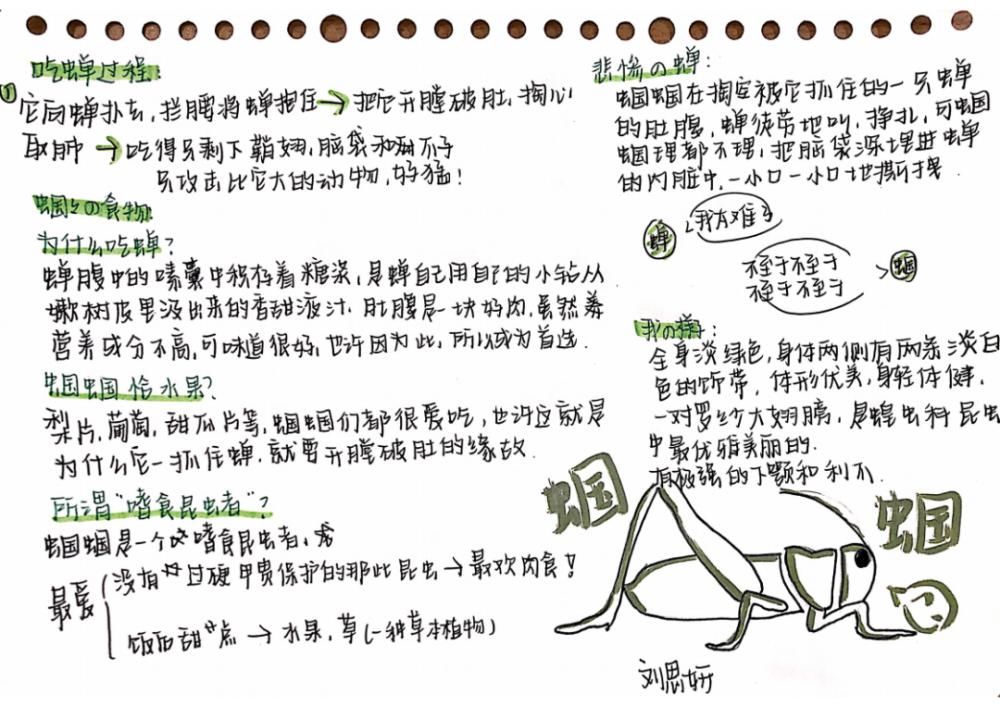 吃蝉过程:
① 它向蝉扑去,拦腰将蝉抱住→把它开膛破肚,掏心
取肺→吃得只剩下鞘翅,脑袋和
只攻击比它大的动物,好猛!
蝈蝈の食物
为什么吃蝉?
蝉腹中的嗉囊中积存着糖浆,是蝉自己用自己的小钻从
嫩树皮里汲出来的香甜液汁,肚腹是一块好肉,虽然养
营养成分不高,可味道很好,也许因为此,所以成为首选.
蝈蝈恰水果?
梨片,葡萄,甜瓜片等,蝈蝈们都很爱吃,也许这就是
为什么它一抓住蝉,就要开膛破肚的缘故.
所谓“嗜食昆虫者”?
蝈蝈是一个嗜食昆虫者,
最爱
没有 过硬甲胄保护的那些昆虫→最欢肉食!
饭后甜点→水果,草(一种草本植物)
悲惨の蝉:
蝈蝈在掏空被它抓住的一只蝉
的肚腹,蝉徒劳地叫,挣扎,可蝈
蝈理都不理,把脑袋深埋进蝉
的内脏中,一小口一小口地撕拽.
蝉
我太难了
不至于不至于
不至于不至于
蝈
我の样子:
全身淡绿色,身体两侧有两条淡白
色的饰带,体形优美,身轻体健,
一对罗纱大翅膀,是蝗虫科昆虫
中最优雅美丽的.
有极强的下颚和利爪.
蝈
蝈
刘思妍